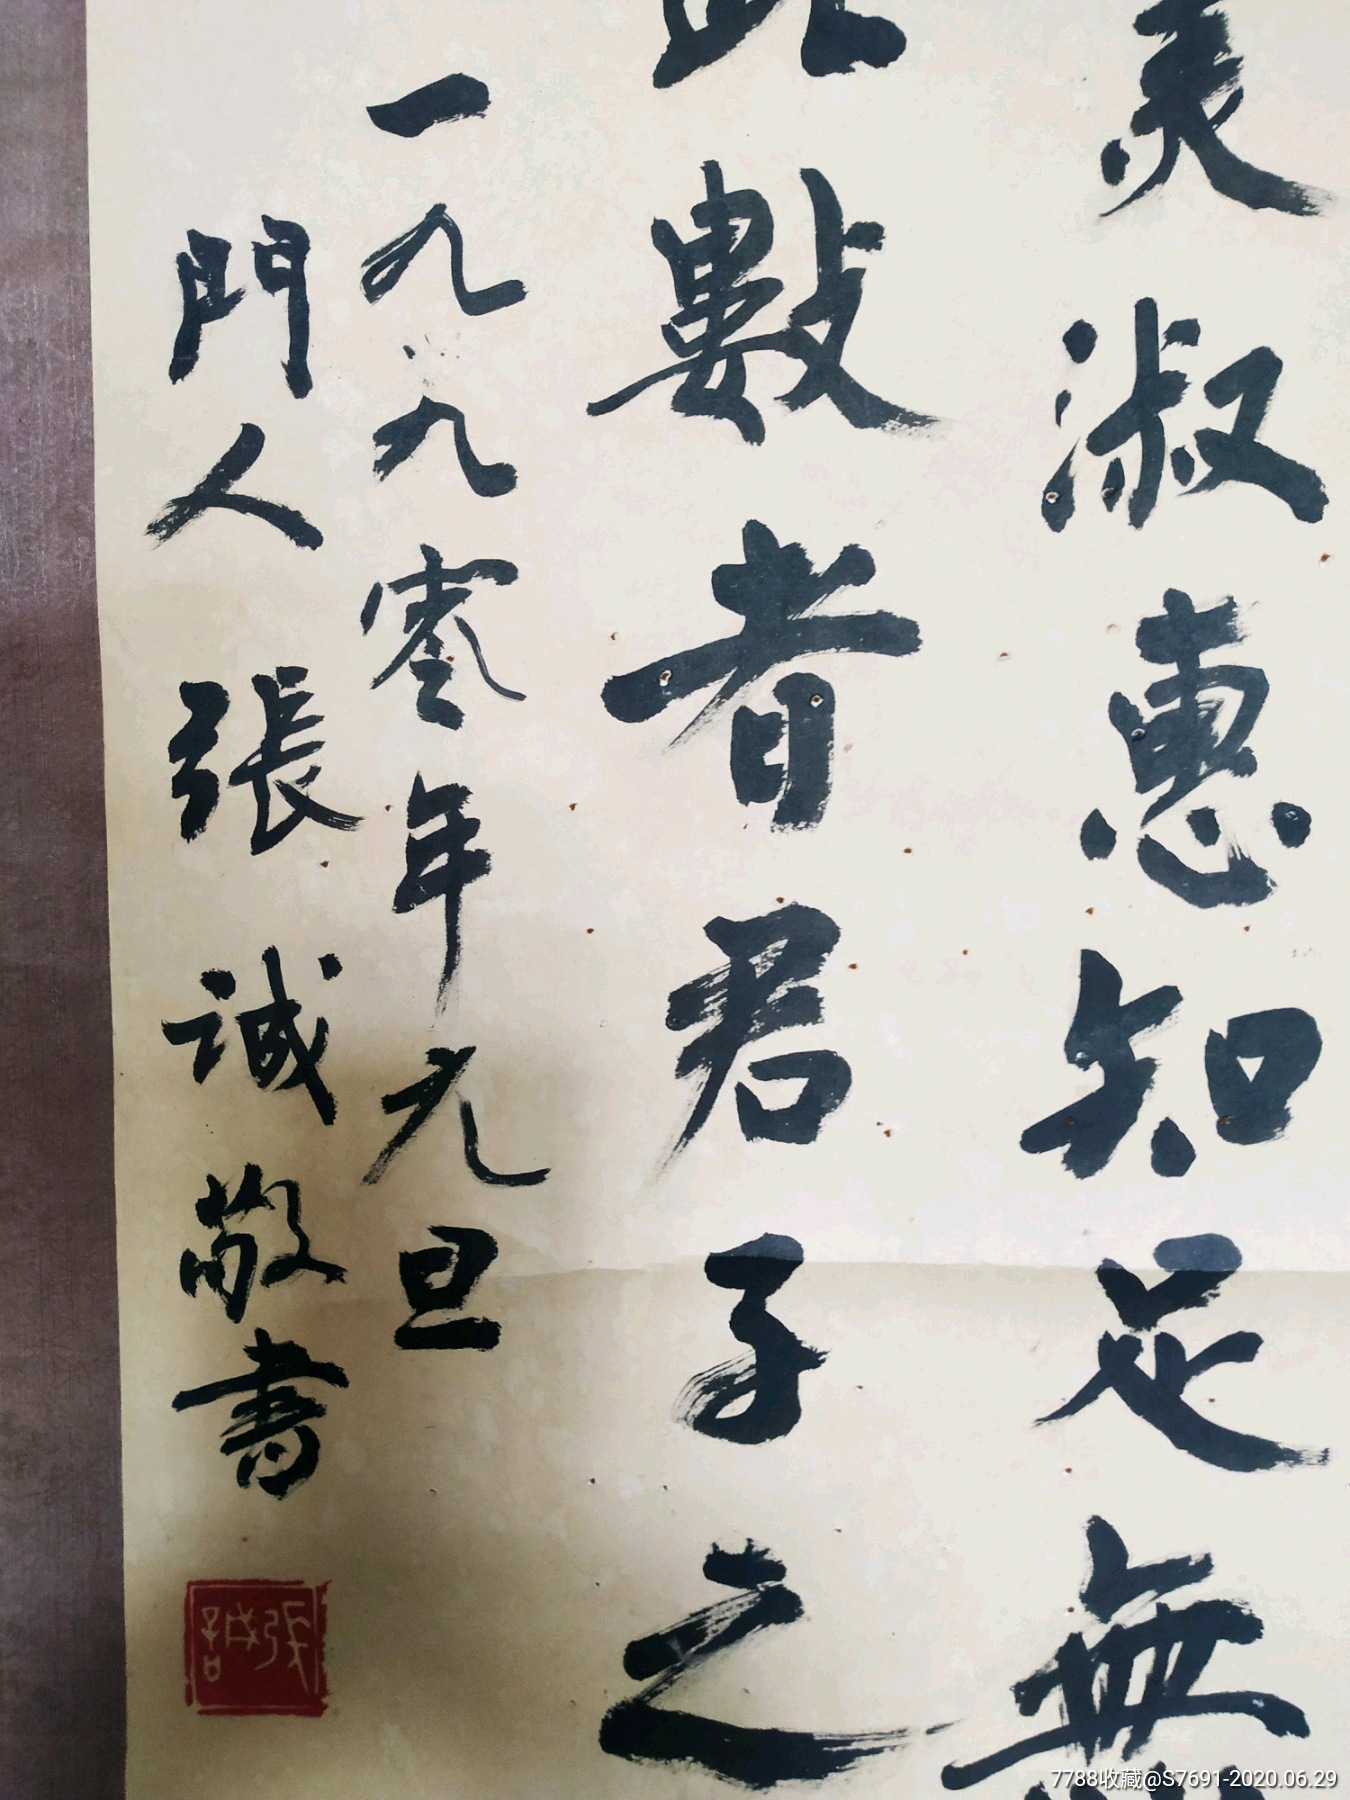 美淑惠知足無
此數者君子之
一九九零年元旦
門人張誠敬書
張誠
7788收藏@S7691-2020.06.29